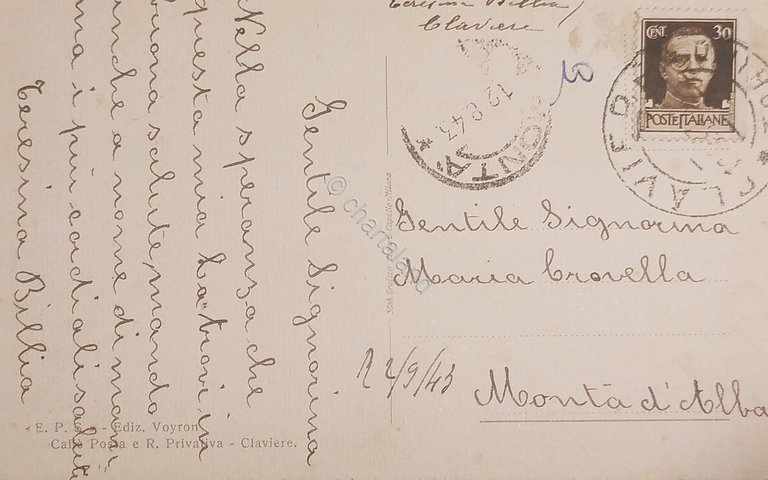 Teresina Billia
Claviere
CENT. 30
POSTE ITALIANE
CLAVIERE
MONTA'
12.8.43
10
Gentile Signorina
Nella speranza che
questa mia La trovi in
buona salute, mando
anche a nome di mamma
i più cordiali saluti
Teresina Billia
Gentile Signorina
Maria Crovella
R 2/9/43
Montà d'Alba
- Ediz. Voyron
Caffè Posta e R. Privativa - Claviere.
© chartaland